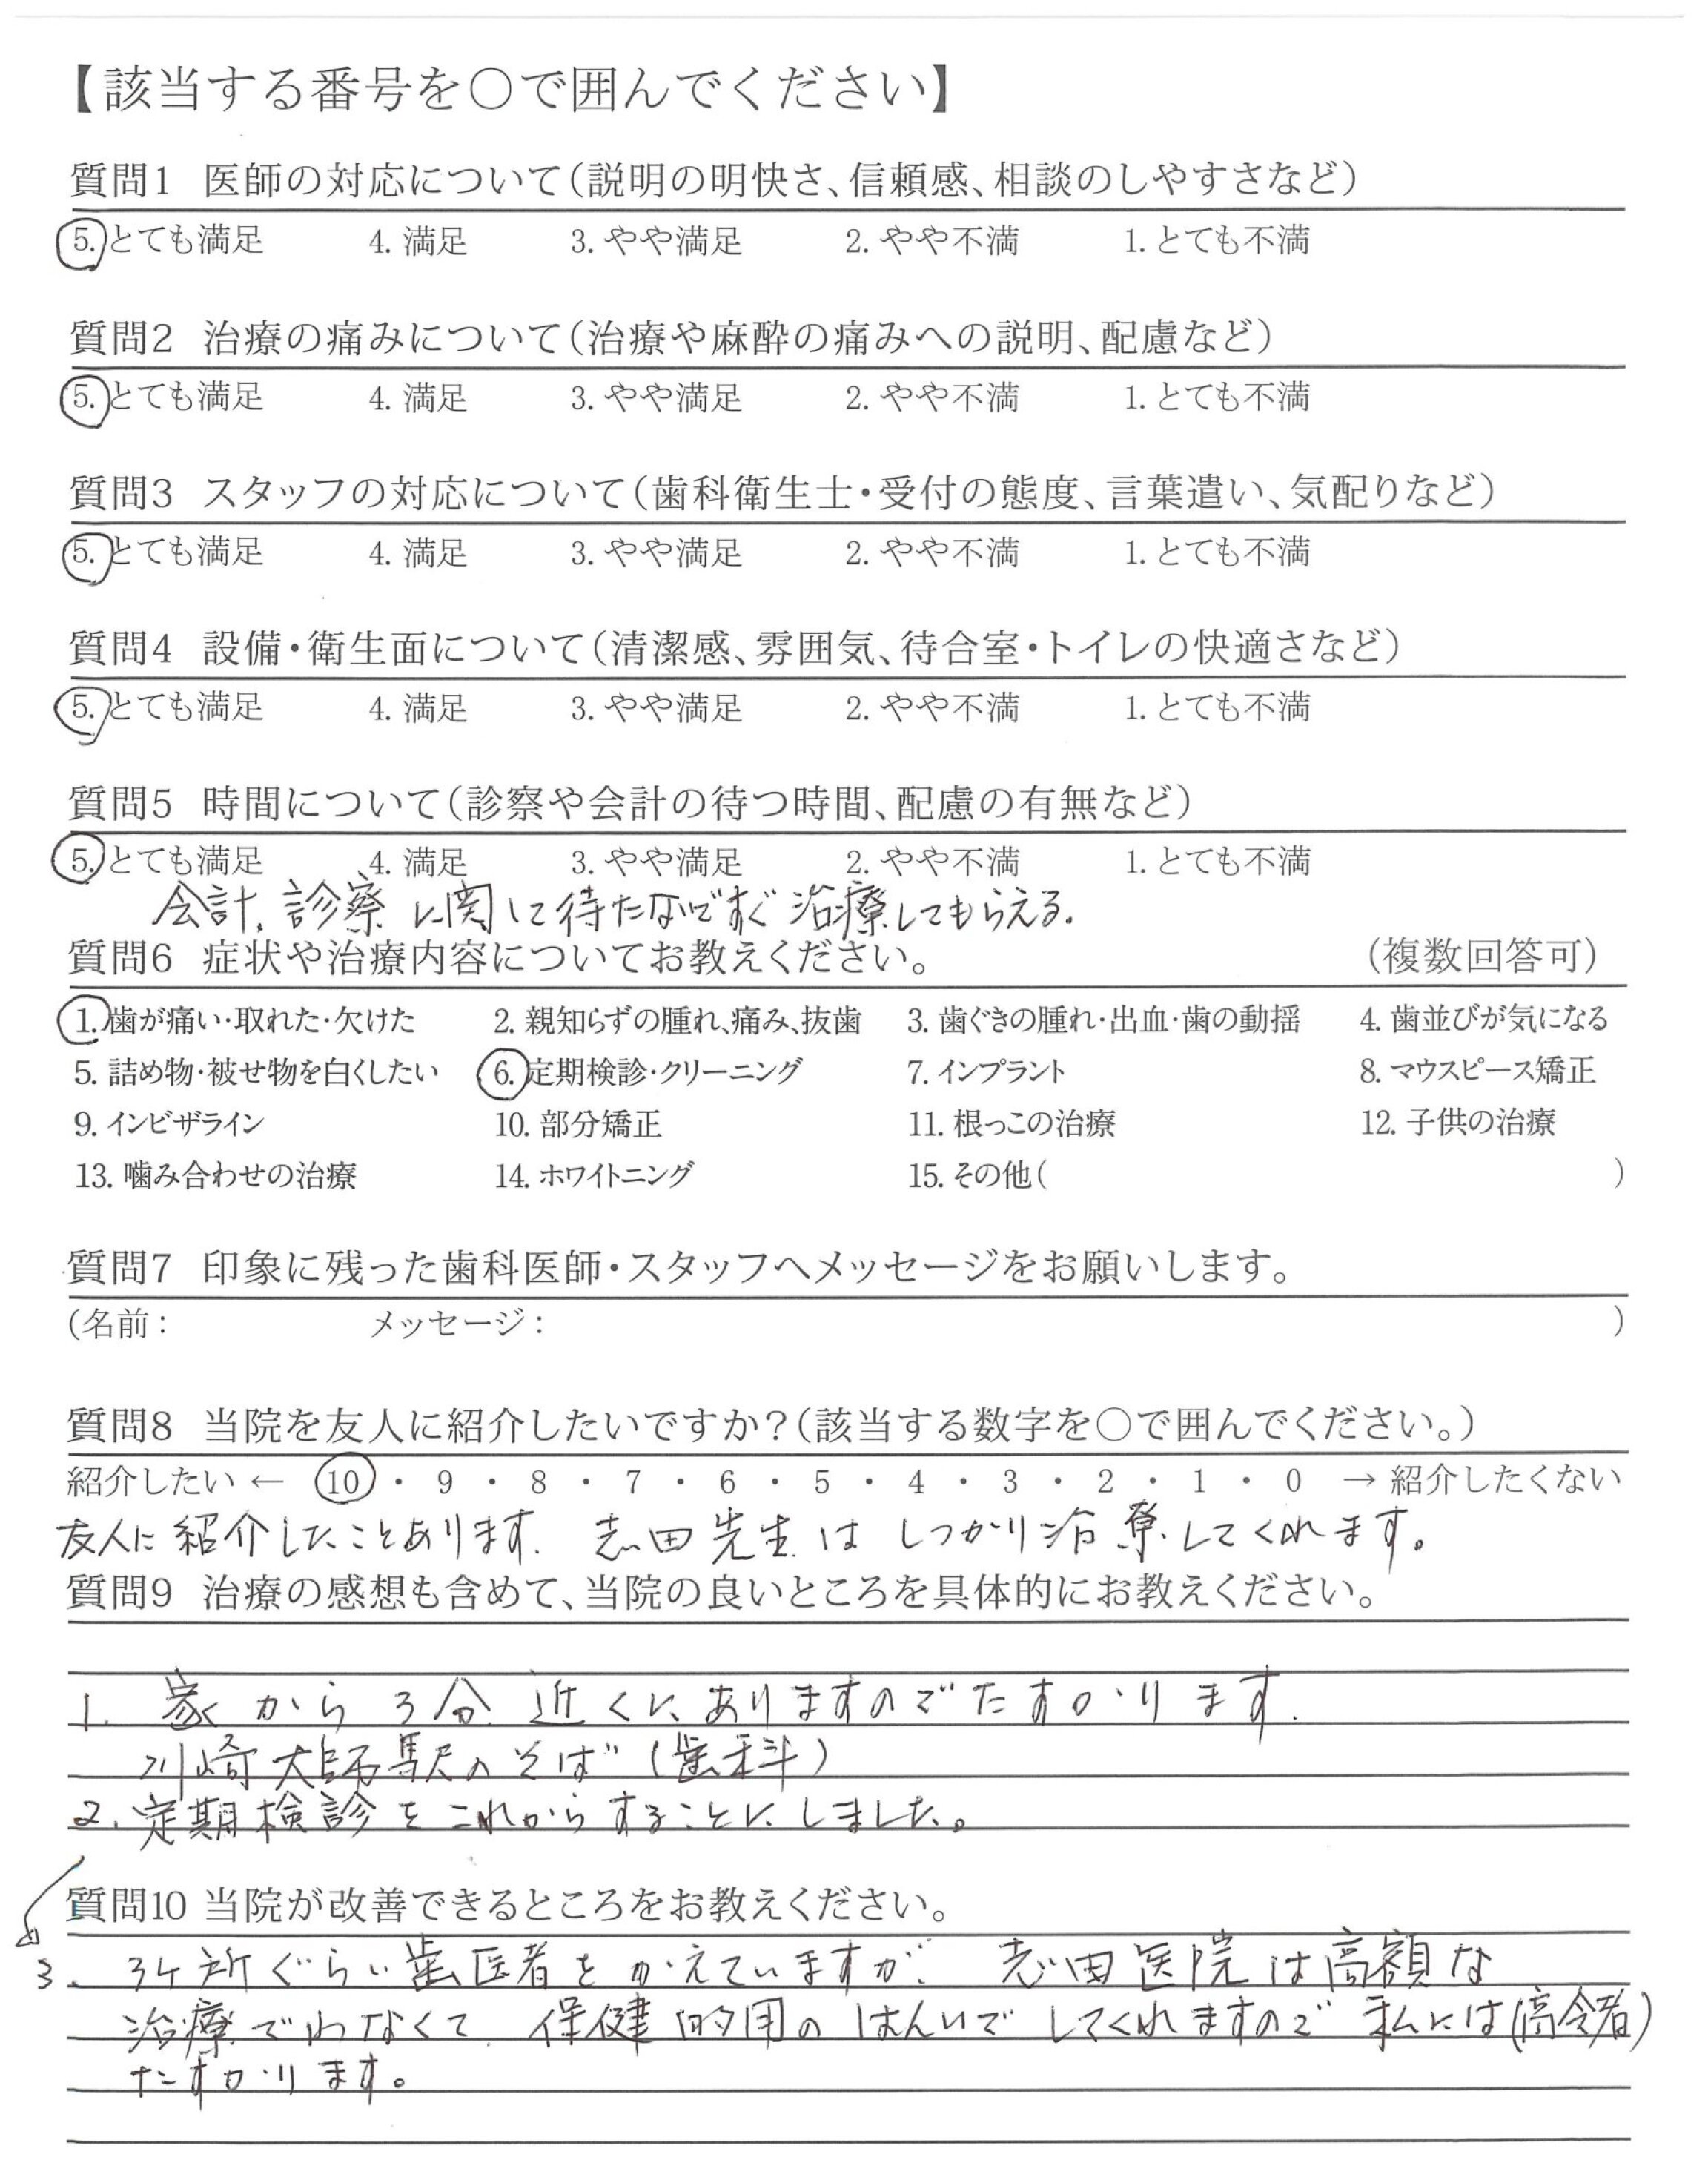 【該当する番号を○で囲んでください】
質問1 医師の対応について(説明の明快さ、信頼感、相談のしやすさなど)
5. とても満足 4. 満足 3. やや満足 2. やや不満 1. とても不満
質問2 治療の痛みについて(治療や麻酔の痛みへの説明、配慮など)
5. とても満足 4. 満足 3. やや満足 2. やや不満 1. とても不満
質問3 スタッフの対応について(歯科衛生士・受付の態度、言葉遣い、気配りなど)
5. とても満足 4. 満足 3. やや満足 2. やや不満 1. とても不満
質問4 設備・衛生面について(清潔感、雰囲気、待合室・トイレの快適さなど)
5. とても満足 4. 満足 3. やや満足 2. やや不満 1. とても不満
質問5 時間について(診察や会計の待つ時間、配慮の有無など)
5. とても満足 4. 満足 3. やや満足 2. やや不満 1. とても不満
会計、診察に関して待たなですぐ治療してもらえる.
質問6 症状や治療内容についてお教えください。 (複数回答可)
1. 歯が痛い・取れた・欠けた 2. 親知らずの腫れ、痛み、抜歯 3. 歯ぐきの腫れ・出血・歯の動揺 4. 歯並びが気になる
5. 詰め物・被せ物を白くしたい 6. 定期検診・クリーニング 7. インプラント 8. マウスピース矯正
9. インビザライン 10. 部分矯正 11. 根っこの治療 12. 子供の治療
13. 噛み合わせの治療 14. ホワイトニング 15. その他( )
質問7 印象に残った歯科医師・スタッフへメッセージをお願いします。
(名前: メッセージ: )
質問8 当院を友人に紹介したいですか?(該当する数字を○で囲んでください。)
紹介したい ← 10 ・ 9 ・ 8 ・ 7 ・ 6 ・ 5 ・ 4 ・ 3 ・ 2 ・ 1 ・ 0 → 紹介したくない
友人に紹介したことあります. 志田先生はしっかり治療してくれます。
質問9 治療の感想も含めて、当院の良いところを具体的にお教えください。
1. 家から3分近くにありますのでたすかります.
川崎大師駅のそば(歯科)
2. 定期検診をこれからすることにしました。
質問10 当院が改善できるところをお教えください。
3. 3ヶ所ぐらい歯医者をかえていますが、志田医院は高額な
治療でわなくて、保健的用のはんいでしてくれますので私には(高令者)
たすかります。